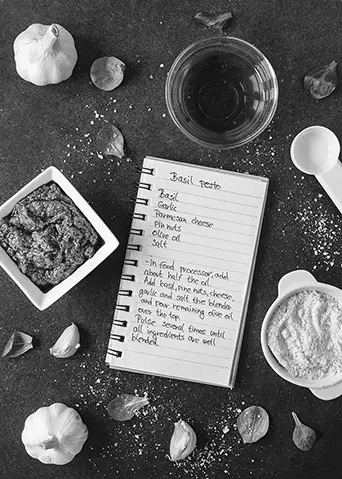 Basil pesto
Basil
Garlic
Parmesan cheese
Pin nuts
Olive oil
Salt
- In food processor, add
about half the oil.
Add basil, pine nuts, cheese,
garlic and salt the blender
and pour remaining olive oil
over the top.
Polse several times until
all ingredients are well
blended.